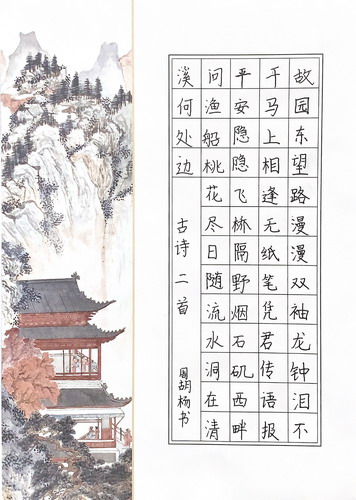 故园东望路漫漫双袖龙钟泪不
干马上相逢无纸笔凭君传语报
平安隐隐飞桥隔野烟石矶西畔
问渔船桃花尽日随流水洞在清
溪何处边
古诗二首
周胡杨书